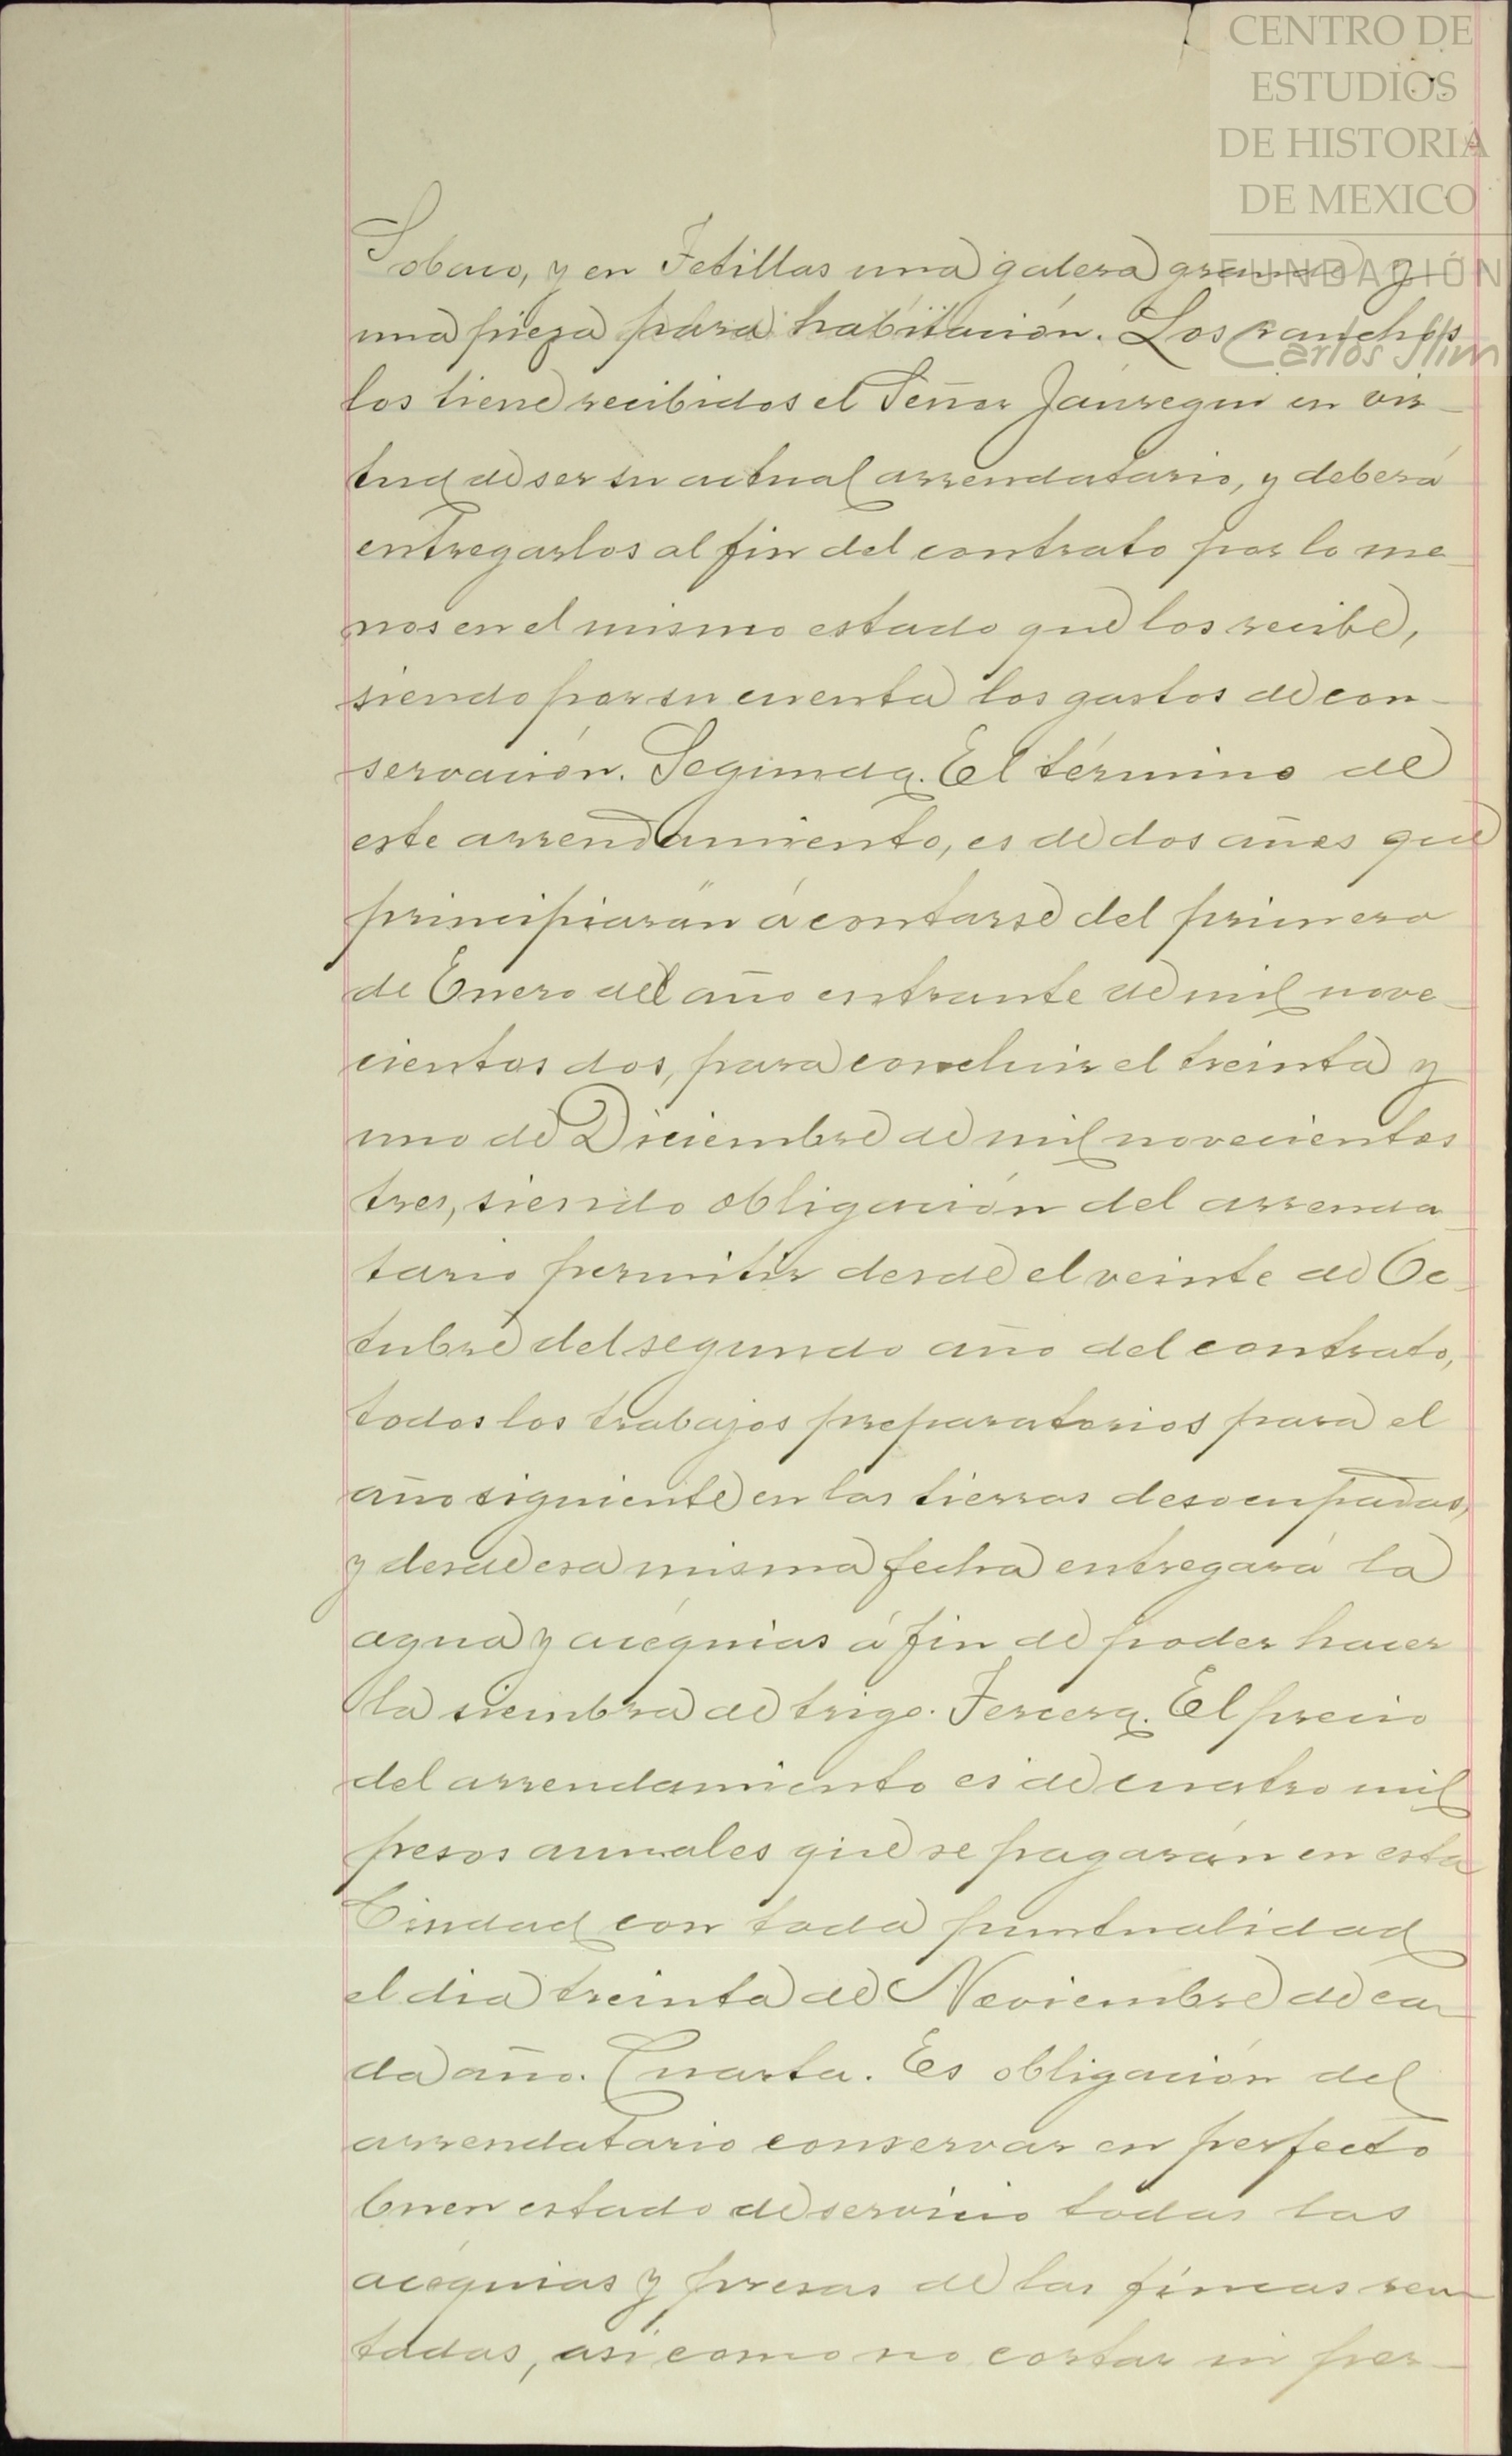 CENTRO DE
ESTUDIOS
DE HISTORIA
DE MEXICO
FUNDACIÓN
Carlos Slim
Sobaco, y en Tetillas una galera grande y
una pieza para habitación. Los ranchos
los tiene recibidos el Señor Jáuregui en vir-
tud de ser su actual arrendatario, y deberá
entregarlos al fin del contrato por lo me-
nos en el mismo estado que los recibe,
siendo por su cuenta los gastos de con-
servación. Segunda. El término de
este arrendamiento, es de dos años que
principiarán á contarse del primero
de Enero del año entrante de mil nove-
cientos dos, para concluir el treinta y
uno de Diciembre de mil novecientos
tres, siendo obligación del arrenda-
tario permitir desde el veinte de Oc-
tubre del segundo año del contrato,
todos los trabajos preparatorios para el
año siguiente en las tierras desocupadas,
y desde esa misma fecha entregará la
agua y acéquias á fin de poder hacer
la siembra de trigo. Tercera. El precio
del arrendamiento es de cuatro mil
pesos anuales que se pagarán en esta
Ciudad con toda puntualidad
el dia treinta de Noviembre de ca-
da año. Cuarta. Es obligación del
arrendatario conservar en perfecto
buen estado de servicio todas las
acéquias y presas de las fincas ren-
tadas, asi como no cortar ni per-